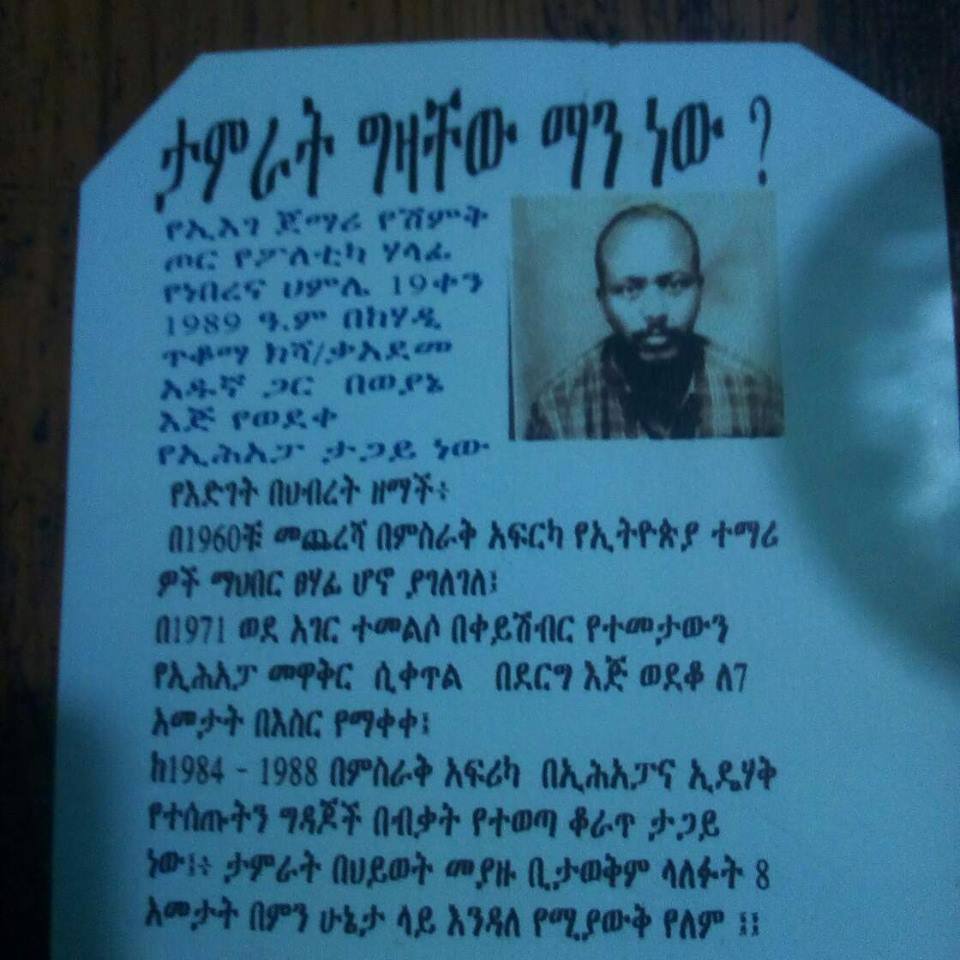 ታምራት ግዛቸው ማን ነው ?
የኢእገ ጀማሪ የሽምት
ጦር የፖለቲካ ሃላፊ
የነበረና ሀምሌ 19ቀን
1989 ዓ.ም በከሃዲ
ጥቆማ ክሻ/ቃአደመ
አዱኛ ጋር በወያኔ
እጅ የወደቀ
የኢሕአፓ ታጋይ ነው
የእድገት በህብረት ዘማች፥
በ1960ቹ መጨረሻ በምስራቅ አፍርካ የኢትዮጵያ ተማሪ
ዎች ማህበር ፀሃፊ ሆኖ ያገለገለ፤
በ1971 ወደ አገር ተመልሶ በቀይሽብር የተመታውን
የኢሕአፓ መዋቅር ሲቀጥል በደርግ እጅ ወደቆ ለ7
አመታት በእስር የማቀቀ፤
ከ1984 - 1988 በምስራቅ አፍሪካ በኢሕአፓና ኢዴሃቅ
የተሰጡትን ግዳጆች በብቃት የተወጣ ቆራጥ ታጋይ
ነው፤፥ ታምራት በህይወት መያዙ ቢታወቅም ላለፉት 8
አመታት በምን ሁኔታ ላይ እንዳለ የሚያውቅ የለም ፤፤